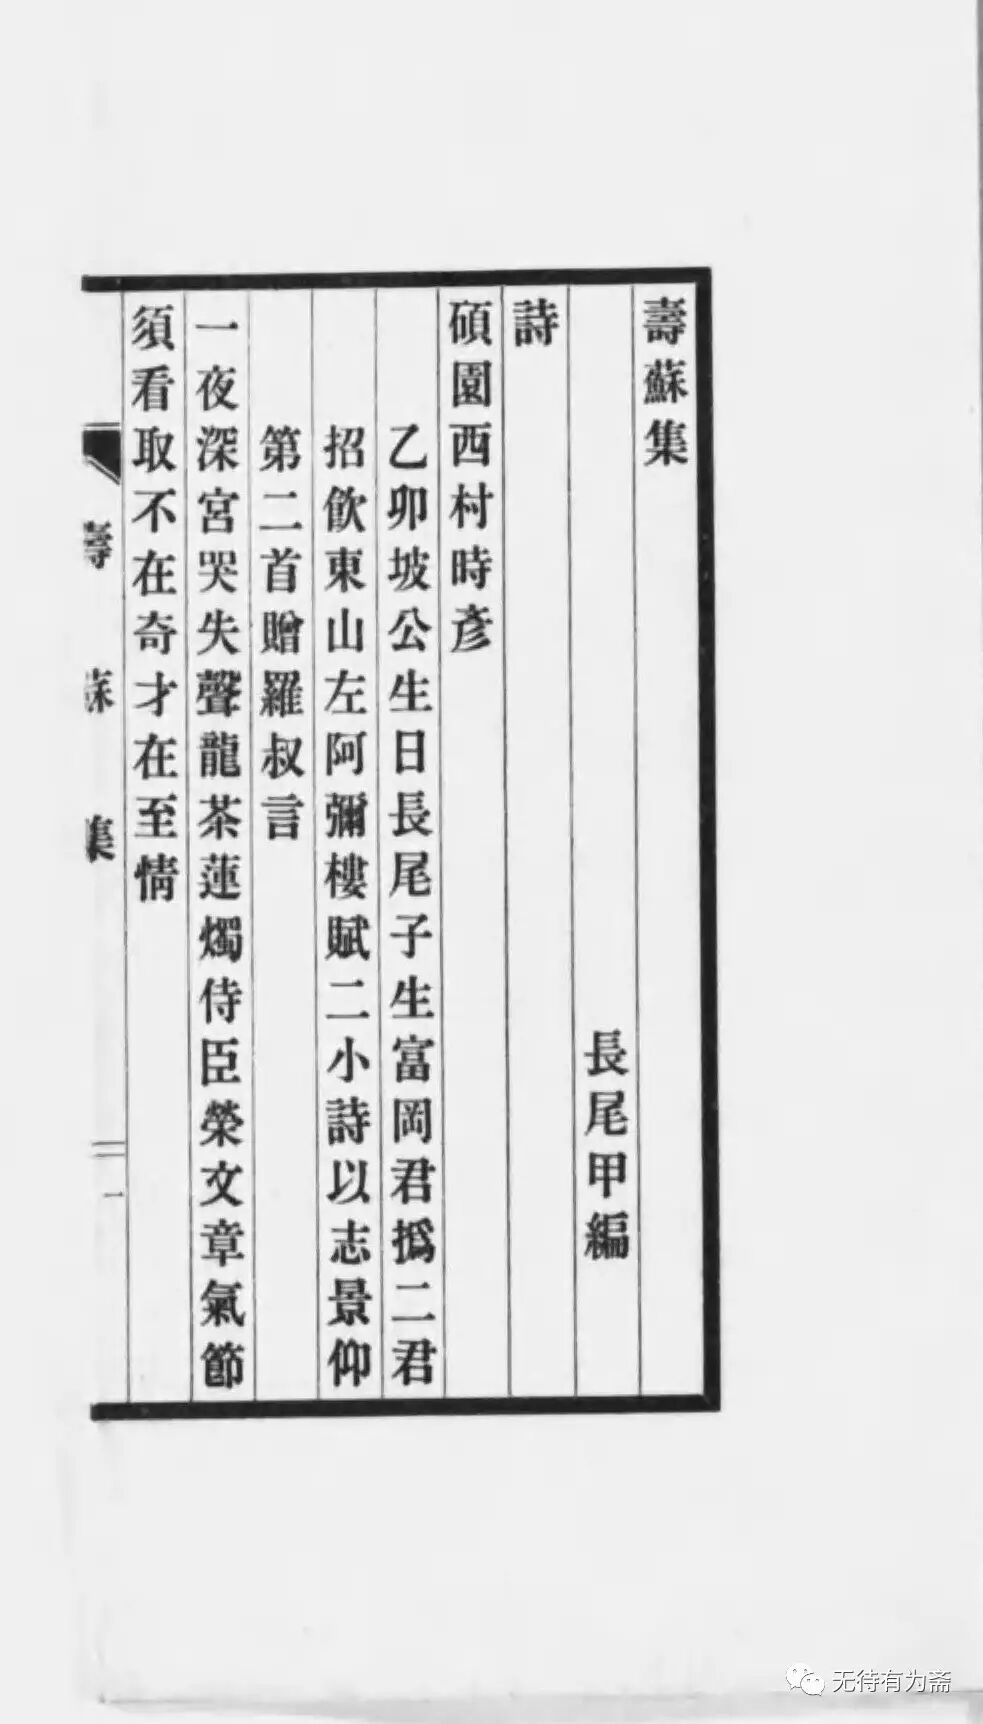 壽蘇集
長尾甲編
詩
碩園西村時彥
乙卯坡公生日長尾子生富岡君撝二君
招飲東山左阿彌樓賦二小詩以志景仰
第二首贈羅叔言
一夜深宮哭失聲龍茶蓮燭侍臣榮文章氣節
須看取不在奇才在至情
壽蘇集
一
无待有为斋